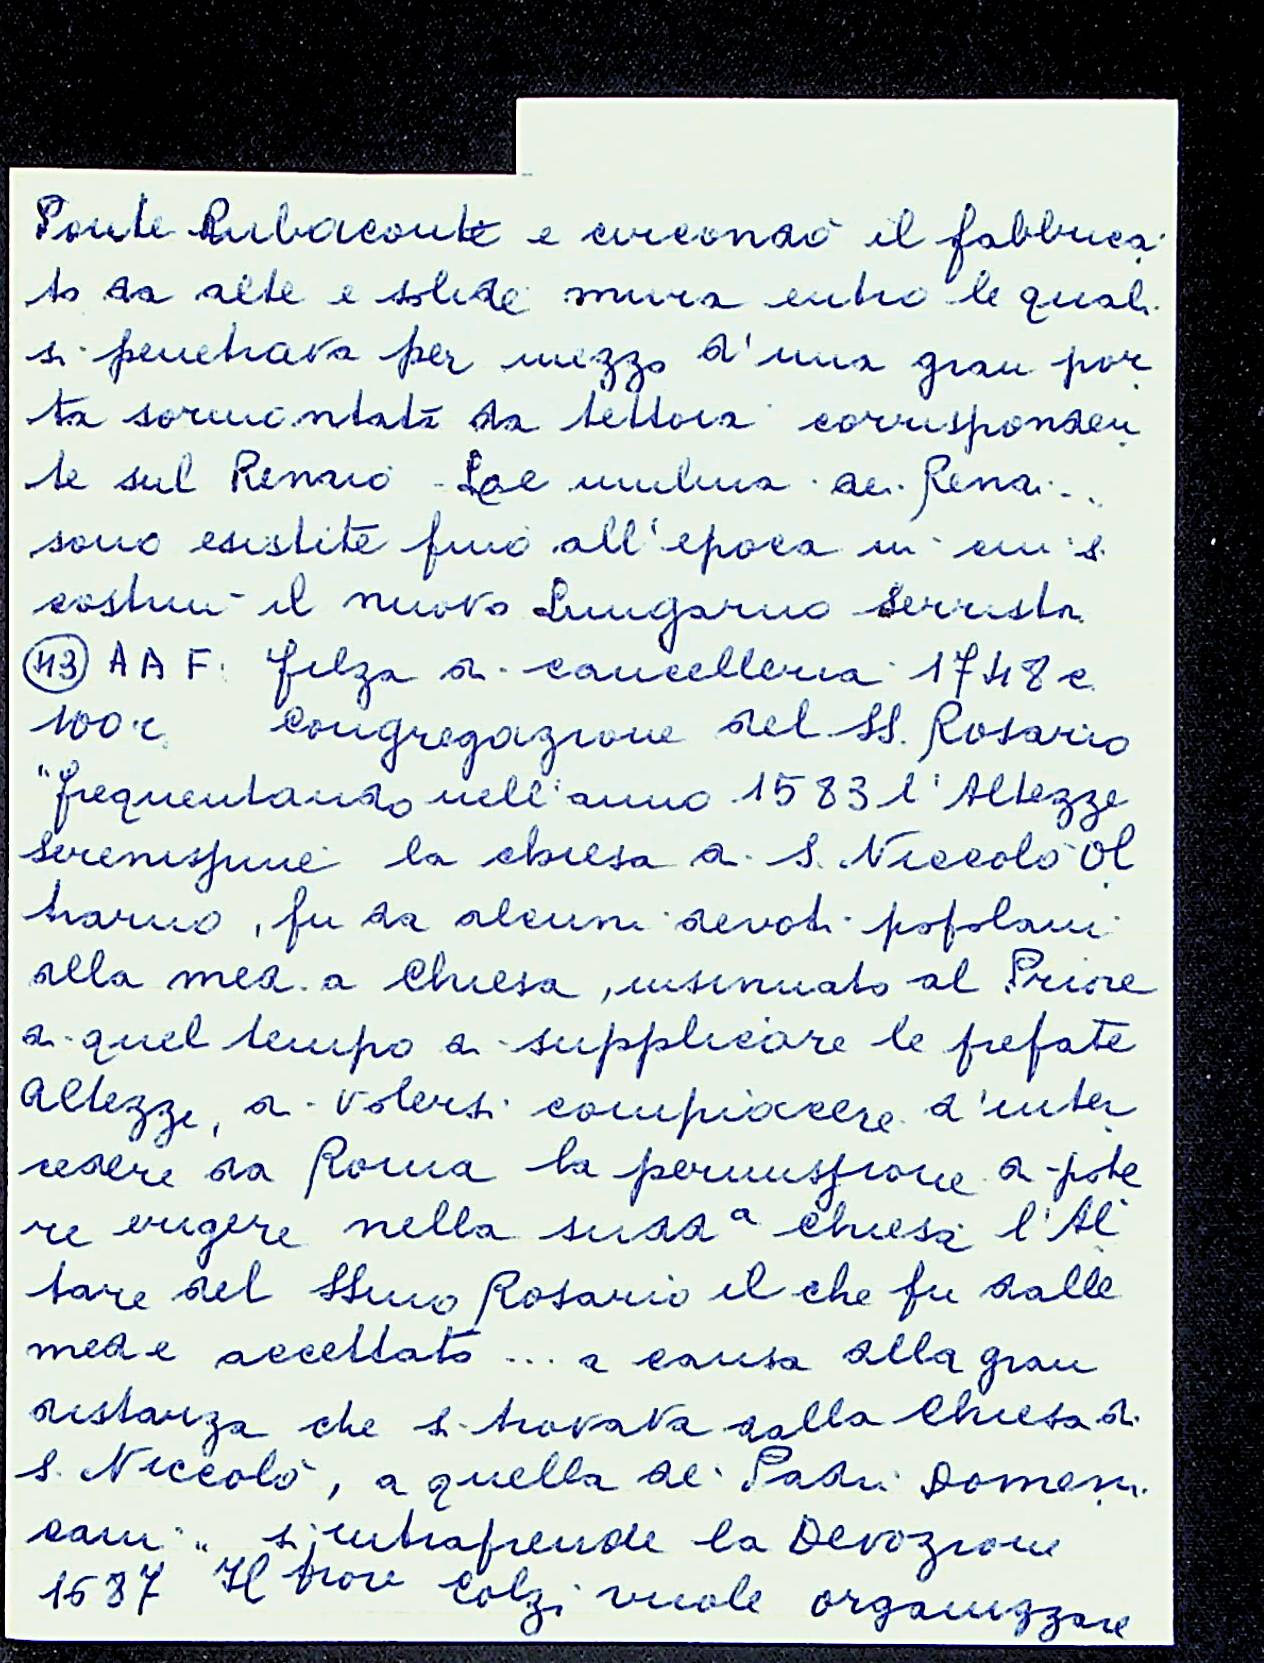 Ponte Rubaconte e circondò il fabbrica
to da alte e solide mura entro le quali
si penetrava per mezzo d'una gran por
ta sormontata da tettoia corrisponden
te sul Renaio - Le mulina dei Renai...
sono esistite fino all'epoca in cui si
costruì il nuovo Lungarno Serristri
(43) AAF. filza di cancelleria 1748 c.
100 r. Congregazione del SS. Rosario
"frequentando nell'anno 1583 l'Altezze
serenissime la chiesa di S. Niccolò Ol
trarno, fu da alcuni devoti popolani
della med.a Chiesa, insinuato al Priore
di quel tempo di supplicare le prefate
Altezze, di volersi compiacere d'inter
cedere da Roma la permissione di pote
re erigere nella sudd.a Chiesa l'Al
tare del SSmo Rosario il che fu dalle
med.e accettato ... a causa della gran
distanza che si trovava dalla Chiesa di
S. Niccolò, a quella de' Padri Domeni
cani" s'intraprende la Devozione
1587 Il Colzi vuole organizzare